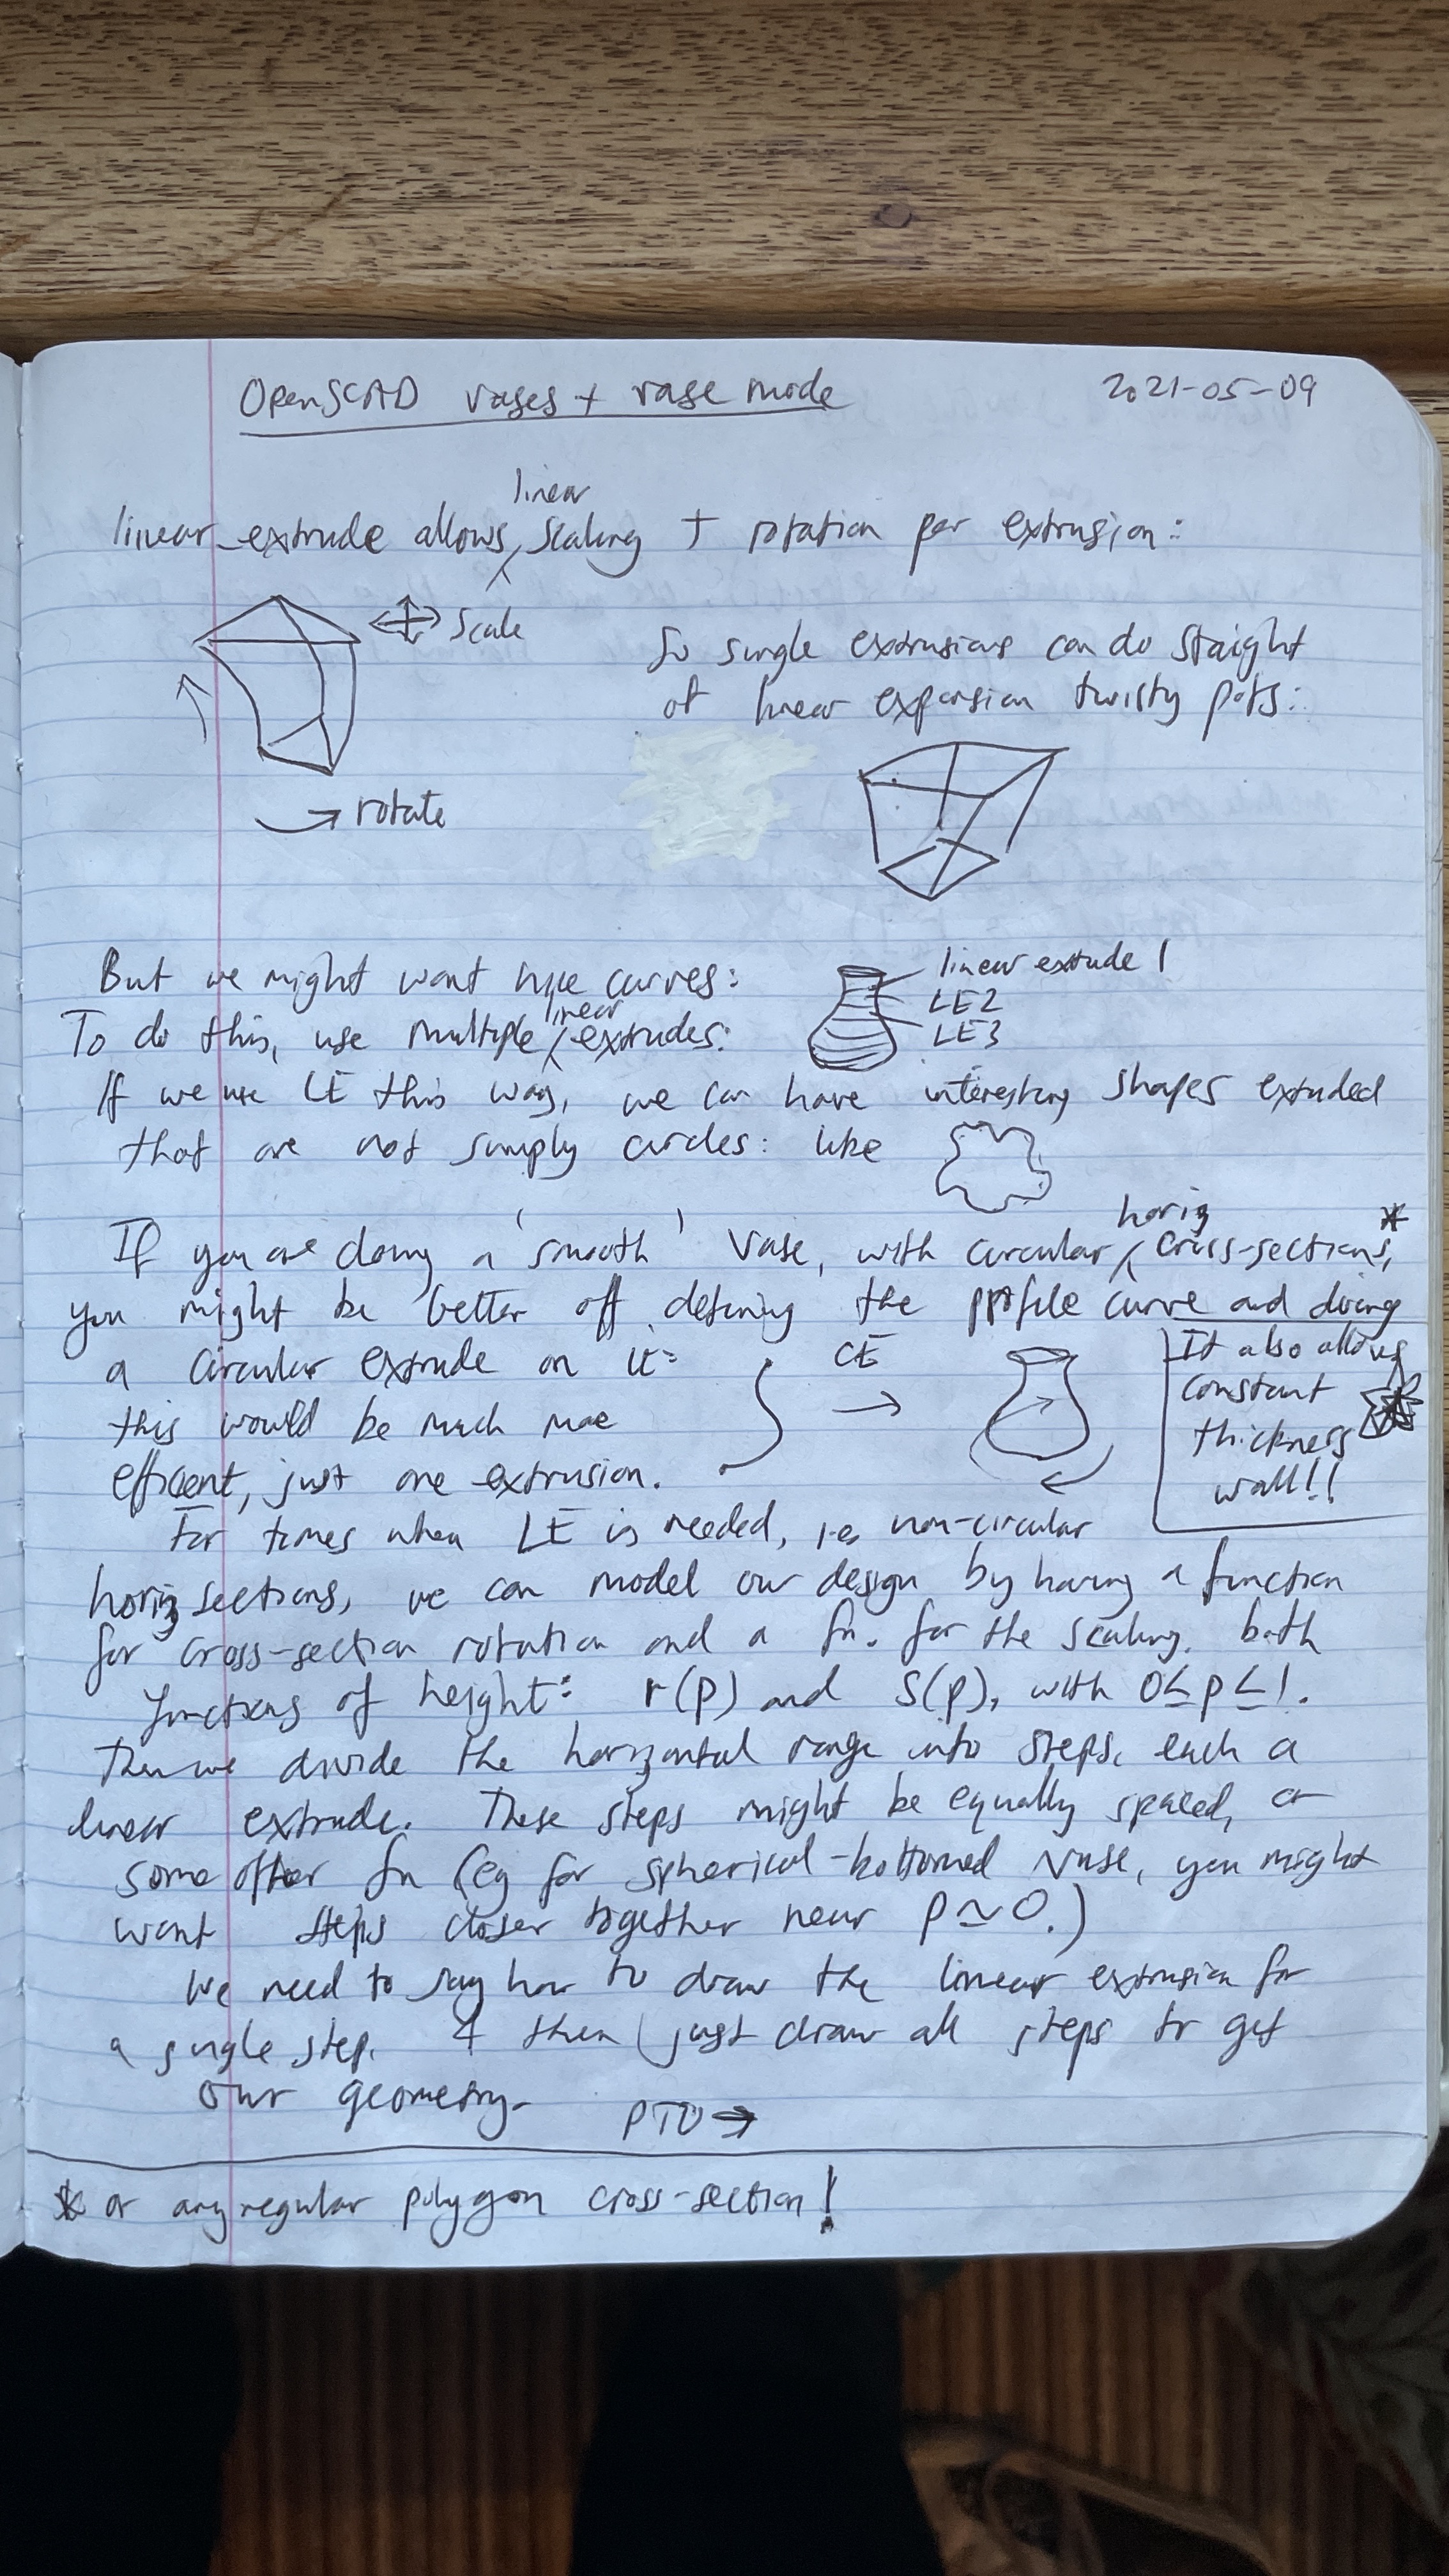 OpenSCAD vases + vase mode 2021-05-09
linear
linear_extrude allows scaling + rotation per extrusion:
scale
So single extrusions can do staight
of linear expansion twisty pots:
rotate
But we might want nice curves:
linear extrude 1
LE2
LE3
linear
To do this, use multiple extrudes:
If we use LE this way, we can have interesting shapes extruded
that are not simply circles: like
horiz
If you are doing a 'smooth' vase, with circular cross-sections,*
you might be better off defining the profile curve and doing
a circular extrude on it:
CE
this would be much more
efficent, just one extrusion.
It also allows
constant
thickness
wall!!
For times when LE is needed, i.e. non-circular
horiz sections, we can model our design by having a function
for cross-section rotation and a fn. for the scaling. both
functions of height: r(p) and s(p), with 0≤p≤1.
Then we divide the horizontal range into steps, each a
linear extrude. These steps might be equally spaced, or
some other fn (eg for spherical-bottomed vase, you might
want steps closer together near p≃0.)
We need to say how to draw the linear extrusion for
a single step. & then just draw all steps to get
our geometry.
PTO →
* or any regular polygon cross-section!